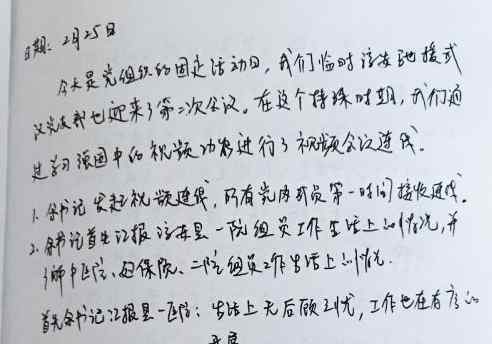 日期：2月25日
今天是党组织的固定活动日，我们临时洪安驰援武
汉党支部也迎来了第二次会议。在这个特殊时期，我们通
过学习强国中的视频功能进行了视频会议连线。
1. 余书记发起视频连线，所有党内成员第一时间接收连线。
2. 余书记首先汇报洪安县一院组员工作生活上的情况，并
中医院、妇保院、二院组员工作生活上的情况.
首先余书记汇报县一医院：生活上无后顾之忧，工作也在有序的
开展